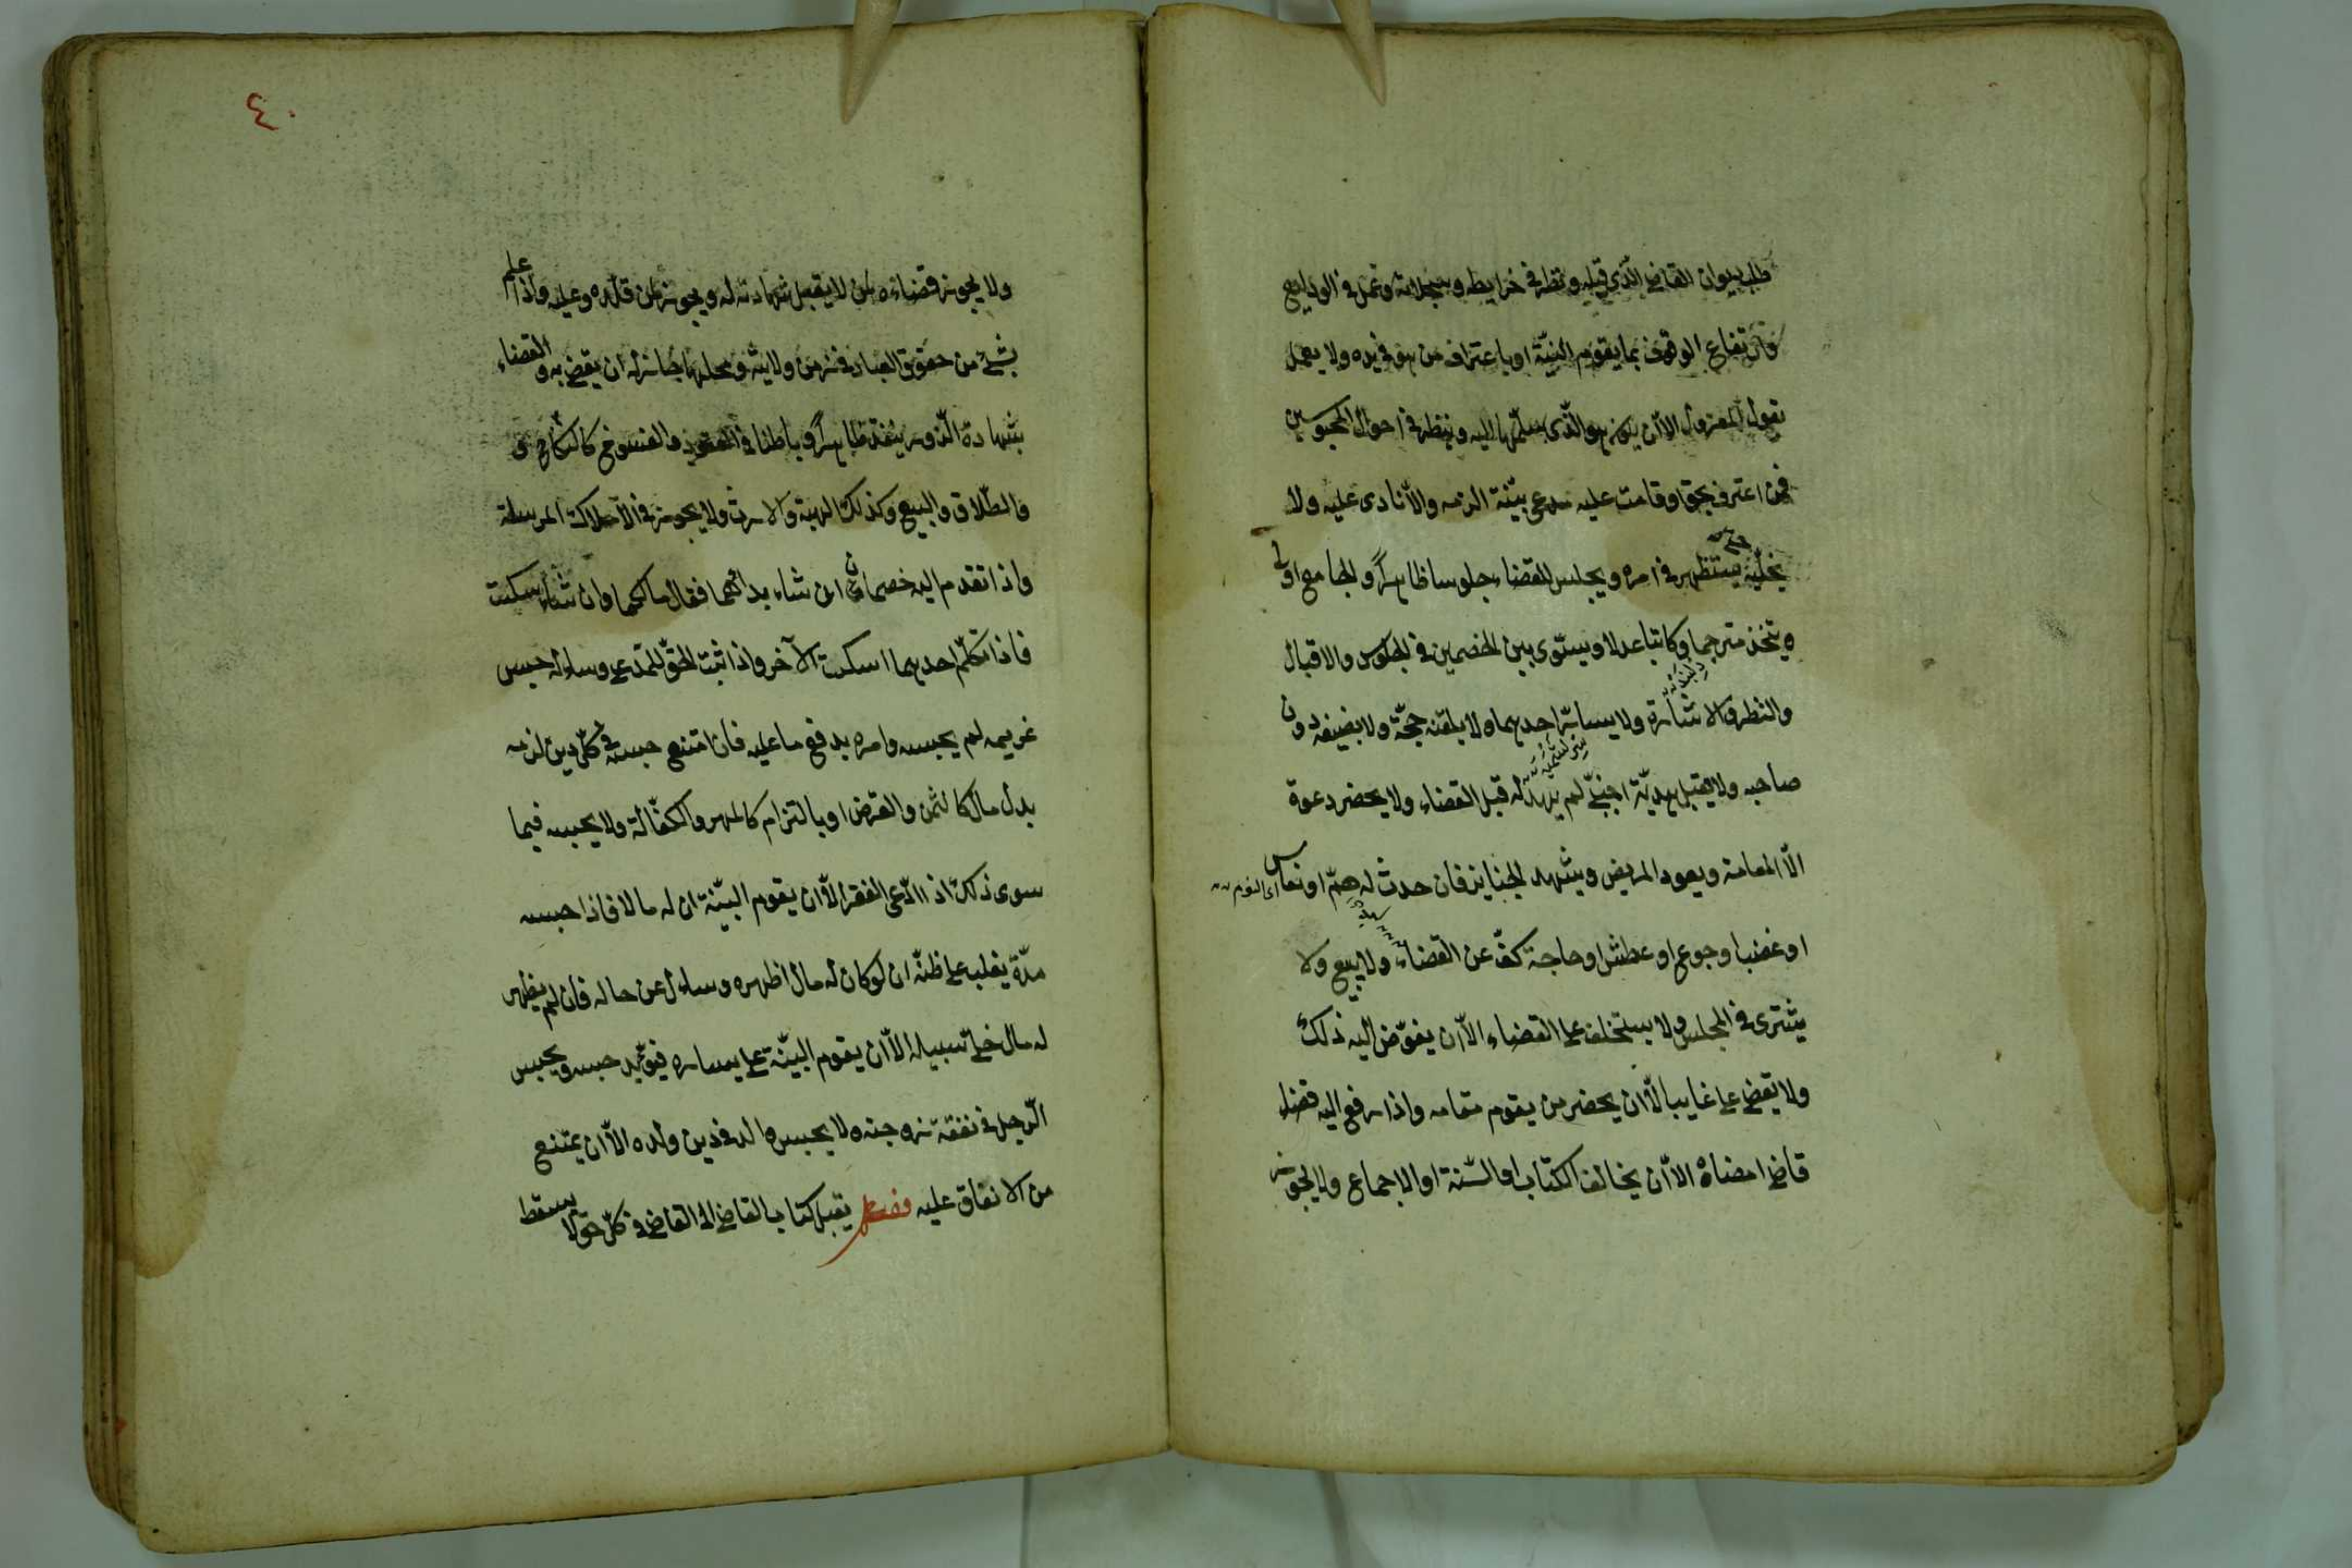 طلب ديوان القاضي الذي قبله ونظر في خرايطه وسجلاته وعمل في الودايع
وارتفاع الوقوف بما يقوم البيّنة او باعتراف من هو في يده ولا يعمل
بقول المعزول الا ان يكون هو الّذى سلّمها اليه وينظر في احوال المحبوسين
فمن اعترف بحق او قامت عليه بيّنة الزمه والاّ نادى عليه ولا
يخلّيه حتى يستظهر في امره ويجلس للقضاء جلوسا ظاهراً والجامع اولى
ويتخذ مترجما وكاتبا عدلا ويسوّى بين الخصمين في الجلوس والاقبال
والنظر والاشارة ولا يسارّ احدهما ولا يلقّنه حجّة ولا يضيفه دون
صاحبه ولا يقبل هديّة اجنبيّ لم يهد له قبل القضاء ولا يحضر دعوة
الاّ العامة ويعود المريض ويشهد الجنايز فان حدث له همّ او نعاس
اى النوم
او غضب او جوع او عطش او حاجة كفّ عن القضاء ولا يبيع ولا
يشترى في المجلس ولا يستخلف على القضاء الاّ ان يفوّض اليه ذلك
ولا يقضى على غايب الاّ ان يحضر من يقوم مقامه واذا رفع اليه قضاء
قاض امضاه الا ان يخالف الكتاب او السّنة او الاجماع ولا يجوز
٤٠
ولا يجوز قضاءه لمن لا يقبل شهادته له ويجوز لمن قلّده وعليه واذا علم
بشئ من حقوق العباد في زمن ولايته ومحلها جاز له ان يقضى به والقضاء
بشهادة الزور ينفذ ظاهراً وباطنا في العقود والفسوخ كالنكاح
والطّلاق والبيع وكذلك الهبة والارث ولا يجوز في الاملاك المرسلة
واذا تقدم اليه خصمان ان شاء بدأهما فقال ما لكما وان شاء سكت
فاذا تكلّم احدهما اسكت الآخر واذا ثبت الحقّ للمدعى وساله حبس
غريمه لم يحبسه وامره بدفع ما عليه فان امتنع حبسه في كلّ دين لزمه
بدل مال كالثمن والقرض او بالتزام كالمهر والكفالة ولا يحبسه فيما
سوى ذلك اذا ادّعى الفقر الاّ ان يقوم البيّنة ان له مالا فاذا حبسه
مدّة يغلب على ظنّه ان لو كان له مال اظهره وسال عن حاله فان لم يظهر
له مال خلّى سبيله الاّ ان يقوم البيّنة على يساره فيؤبّد حبسه ويحبس
الرّجل في نفقة زوجته ولا يحبس والد في دين ولده الاّ ان يمتنع
من الانفاق عليه فصل يقبل كتاب القاضى الى القاضى في كلّ حقّ لا يسقط